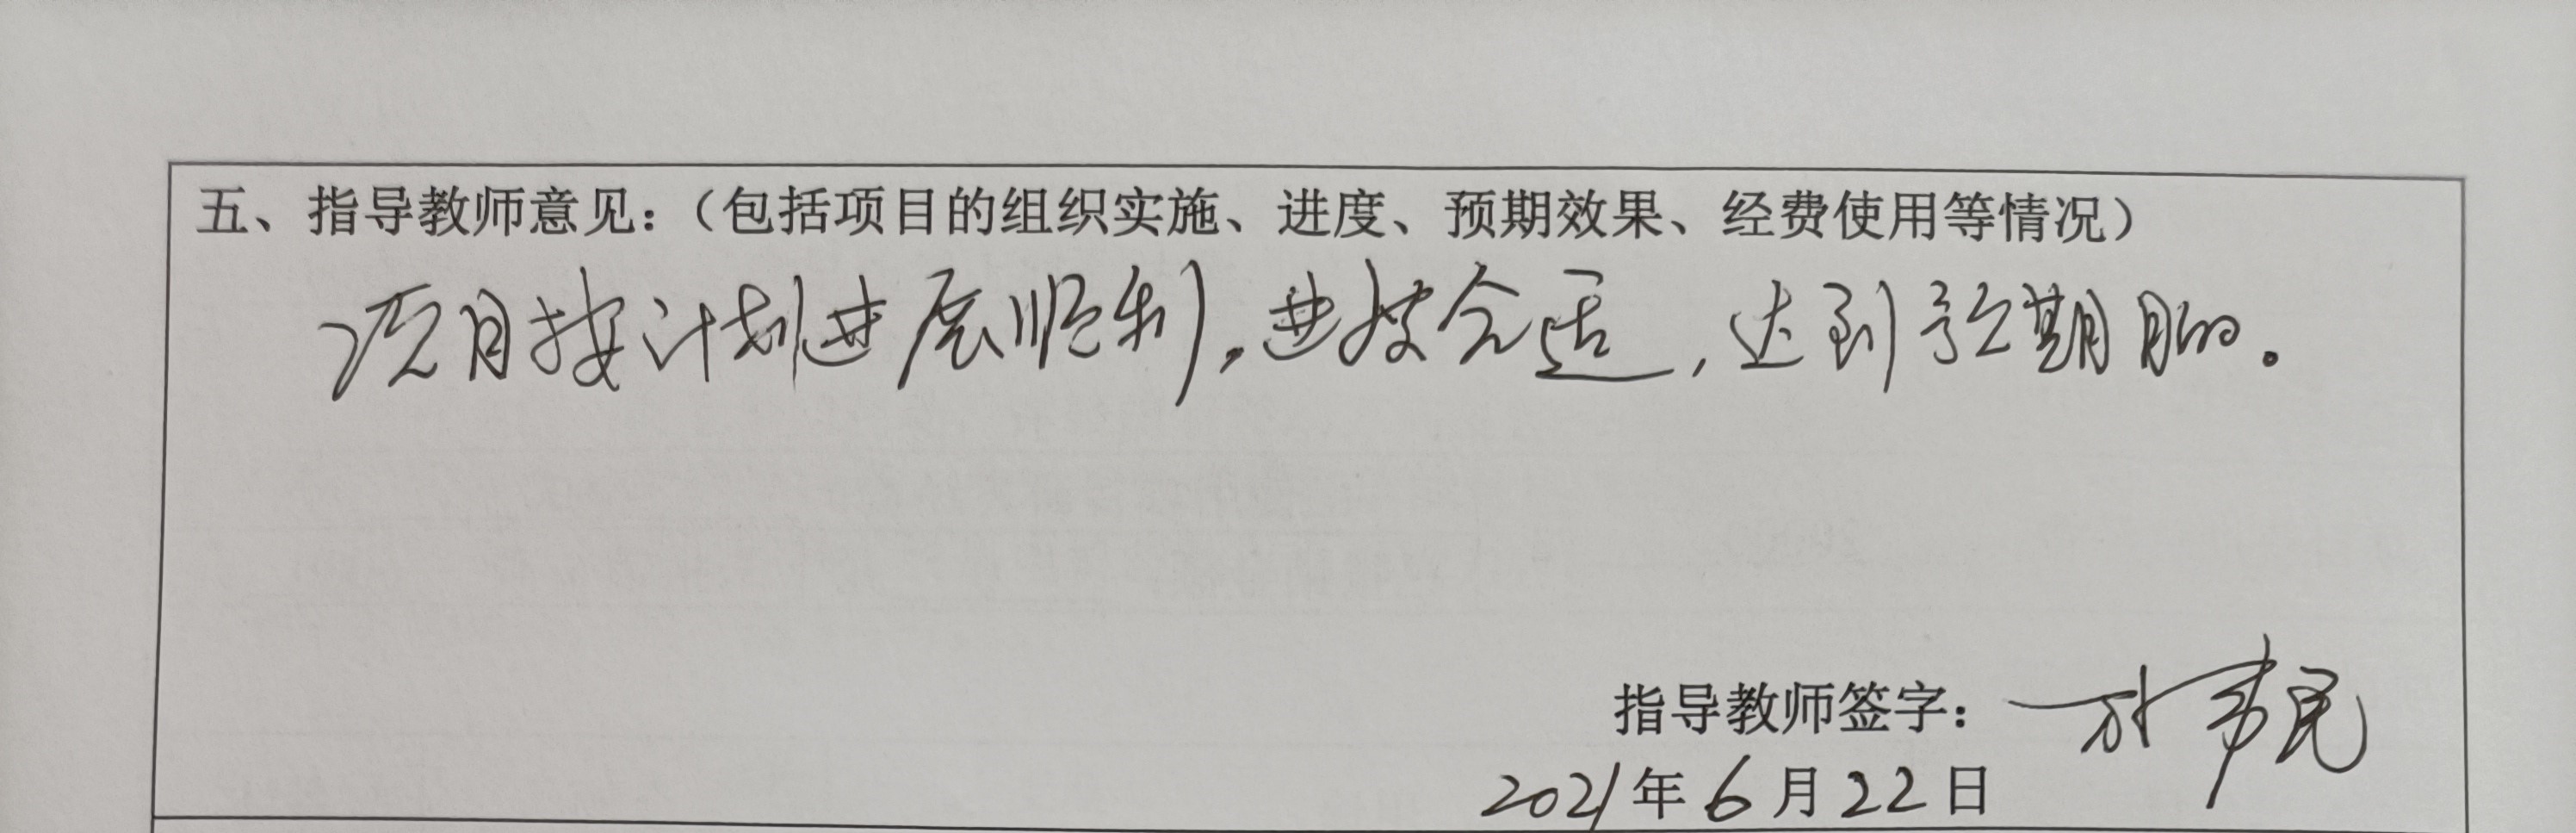 五、指导教师意见：（包括项目的组织实施、进度、预期效果、经费使用等情况）
项目按计划进展顺利，进度合适，达到预期目的。
指导教师签字：
2021年6月22日